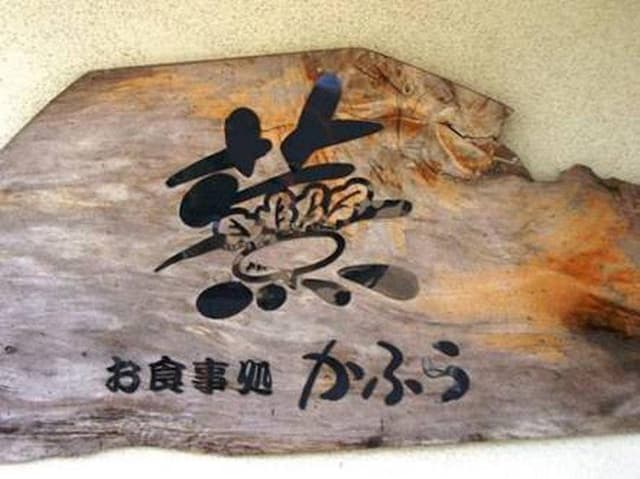 蕪
お食事処 かふら